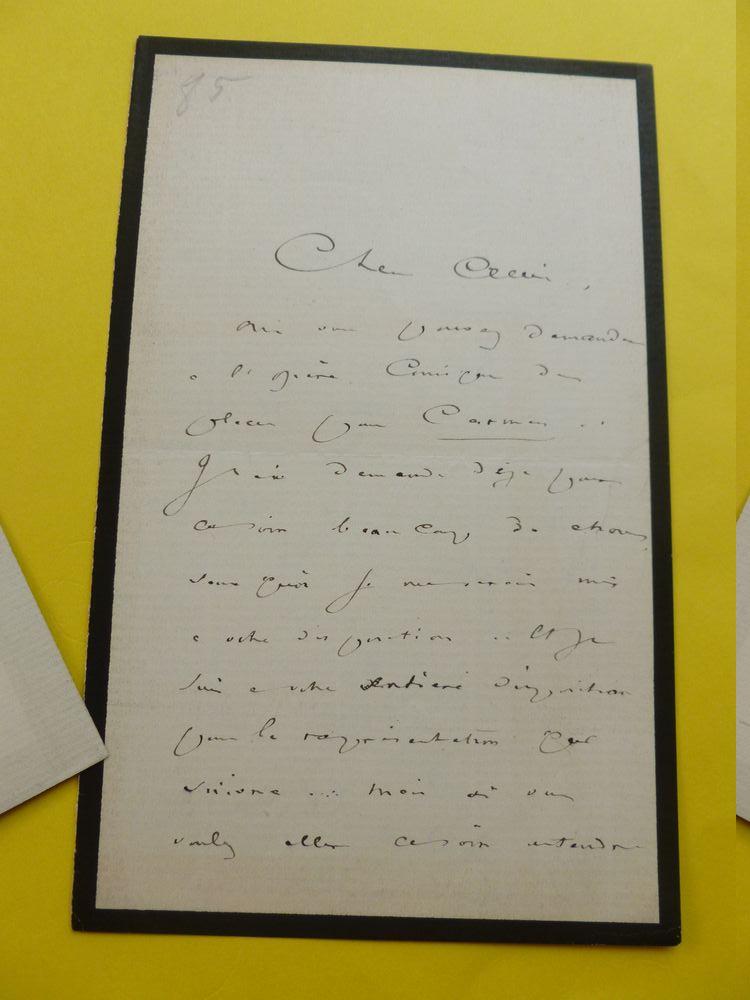 85
Cher
vous pouvez demander
a l'opéra Comique des
places pour Carmen ..
J'ai demandé déjà pour
ce soir beaucoup de choses,
sans quoi je me serais mis
a votre disposition .. Et je
suis a votre entière disposition
pour la représentation qui
suivra ... mais si vous
voulez aller ce soir entendre